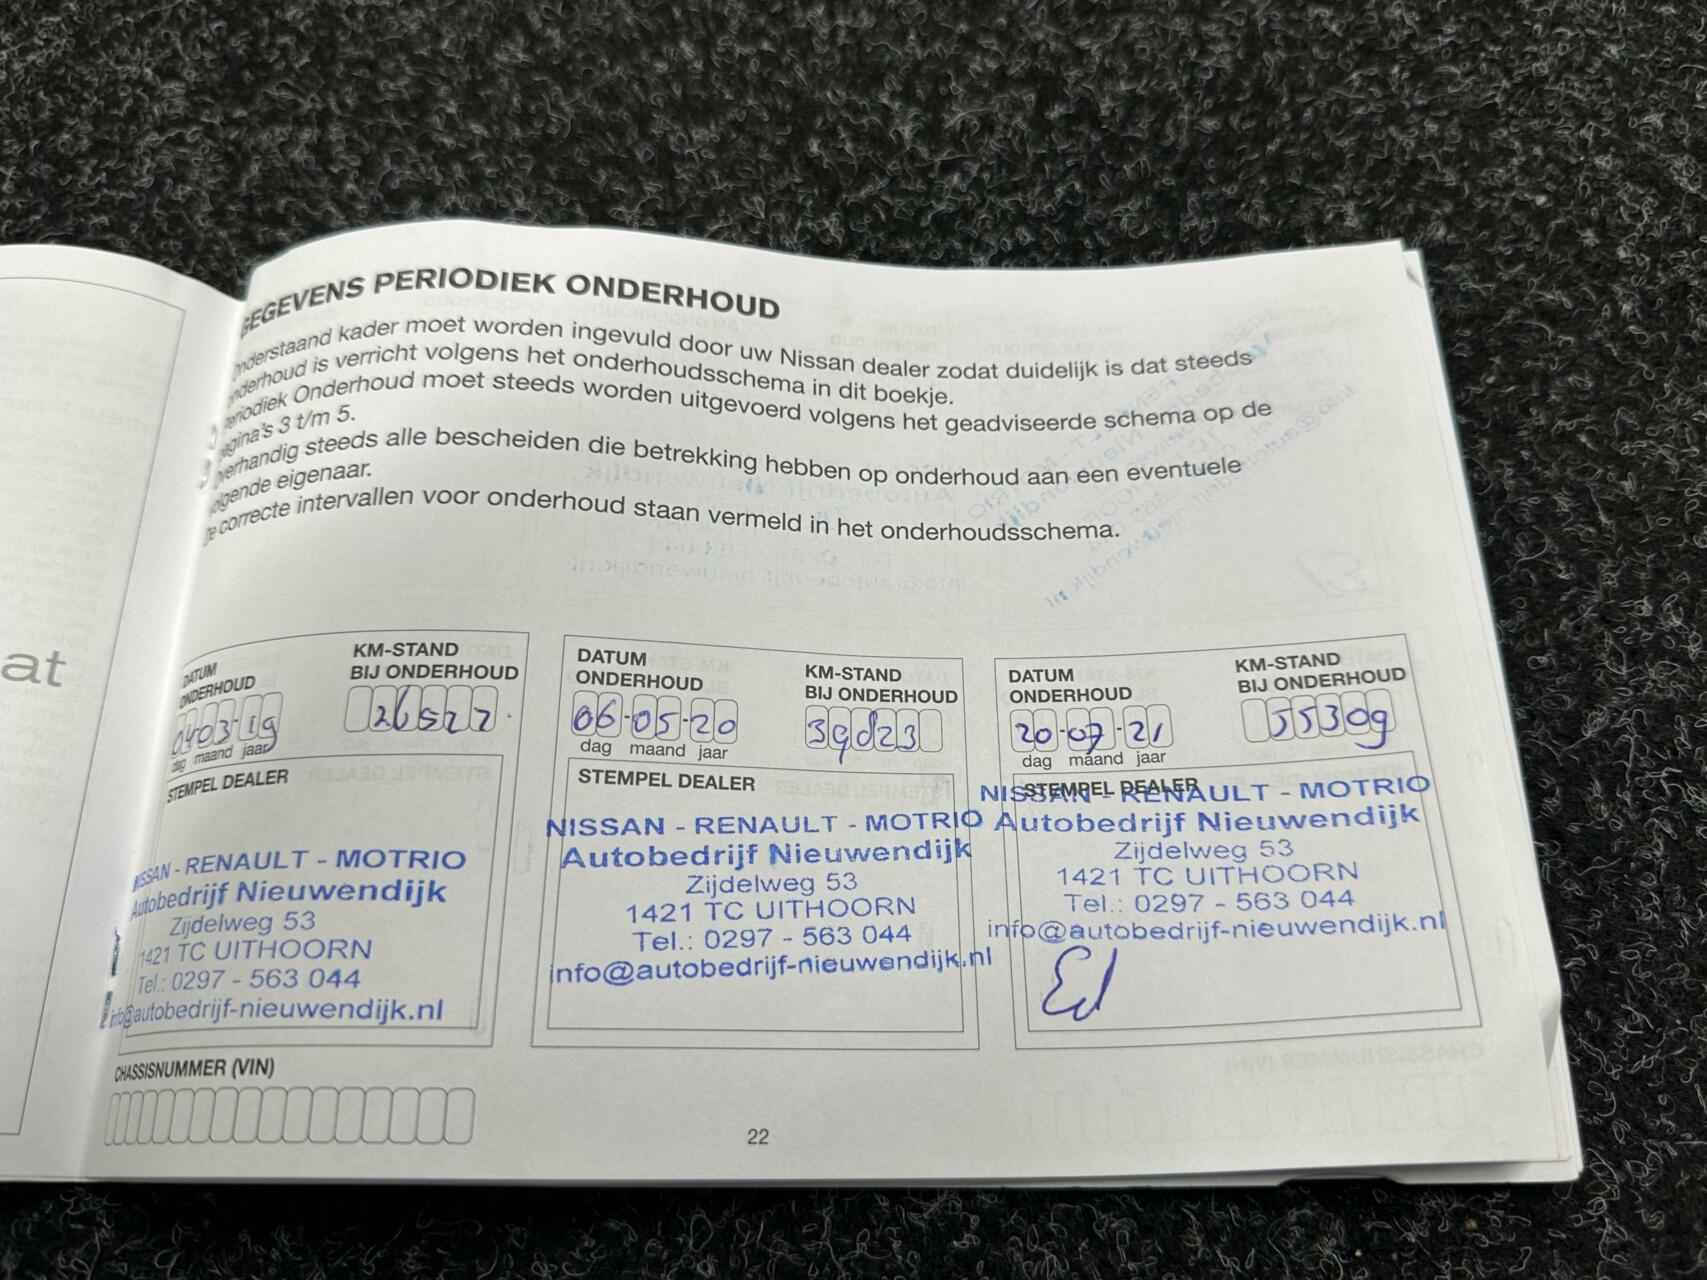 GEGEVENS PERIODIEK ONDERHOUD
onderstaand kader moet worden ingevuld door uw Nissan dealer zodat duidelijk is dat steeds
onderhoud is verricht volgens het onderhoudsschema in dit boekje.
periodiek Onderhoud moet steeds worden uitgevoerd volgens het geadviseerde schema op de
pagina's 3 t/m 5.
overhandig steeds alle bescheiden die betrekking hebben op onderhoud aan een eventuele
volgende eigenaar.
De correcte intervallen voor onderhoud staan vermeld in het onderhoudsschema.
at
DATUM
ONDERHOUD
KM-STAND
BIJ ONDERHOUD
040319
26527
dag maand jaar
STEMPEL DEALER
NISSAN - RENAULT - MOTRIO
Autobedrijf Nieuwendijk
Zijdelweg 53
1421 TC UITHOORN
Tel.: 0297 - 563 044
info@autobedrijf-nieuwendijk.nl
DATUM
ONDERHOUD
KM-STAND
BIJ ONDERHOUD
06-05-20
dag maand jaar
STEMPEL DEALER
NISSAN - RENAULT - MOTRIO
Autobedrijf Nieuwendijk
Zijdelweg 53
1421 TC UITHOORN
Tel.: 0297 - 563 044
info@autobedrijf-nieuwendijk.nl
DATUM
ONDERHOUD
KM-STAND
BIJ ONDERHOUD
20-07-21
55309
dag maand jaar
STEMPEL DEALER
NISSAN - RENAULT - MOTRIO
Autobedrijf Nieuwendijk
Zijdelweg 53
1421 TC UITHOORN
Tel.: 0297 - 563 044
info@autobedrijf-nieuwendijk.nl
CHASSISNUMMER (VIN)
22